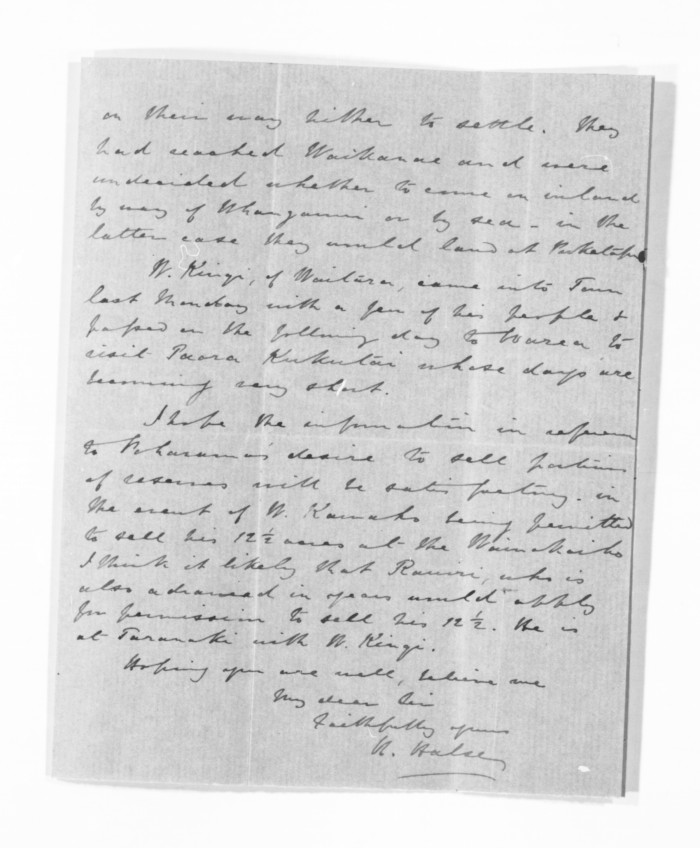 on their way hither to settle. They
had reached Waikanae and were
undecided whether to come on inland
by way of Whanganui or by sea - in the
latter case they would land at
W. Kingi, of Waitara, came into Town
last Monday with a few of his people &
passed on the following day to Warea to
visit Paora Kukutai whose days are
becoming very short.
I hope the information in reference
to Poharama's desire to sell portions
of reserves will be satisfactory. in
the event of W. Kawaho being permitted
to sell his 12½ acres at the Waiwakaiho
I think it likely that Rawiri, who is
also advanced in years would apply
for permission to sell his 12½. He is
at Taranaki with W. Kingi.
Hoping you are well, believe me
My dear Sir
Faithfully yours
H. Halse